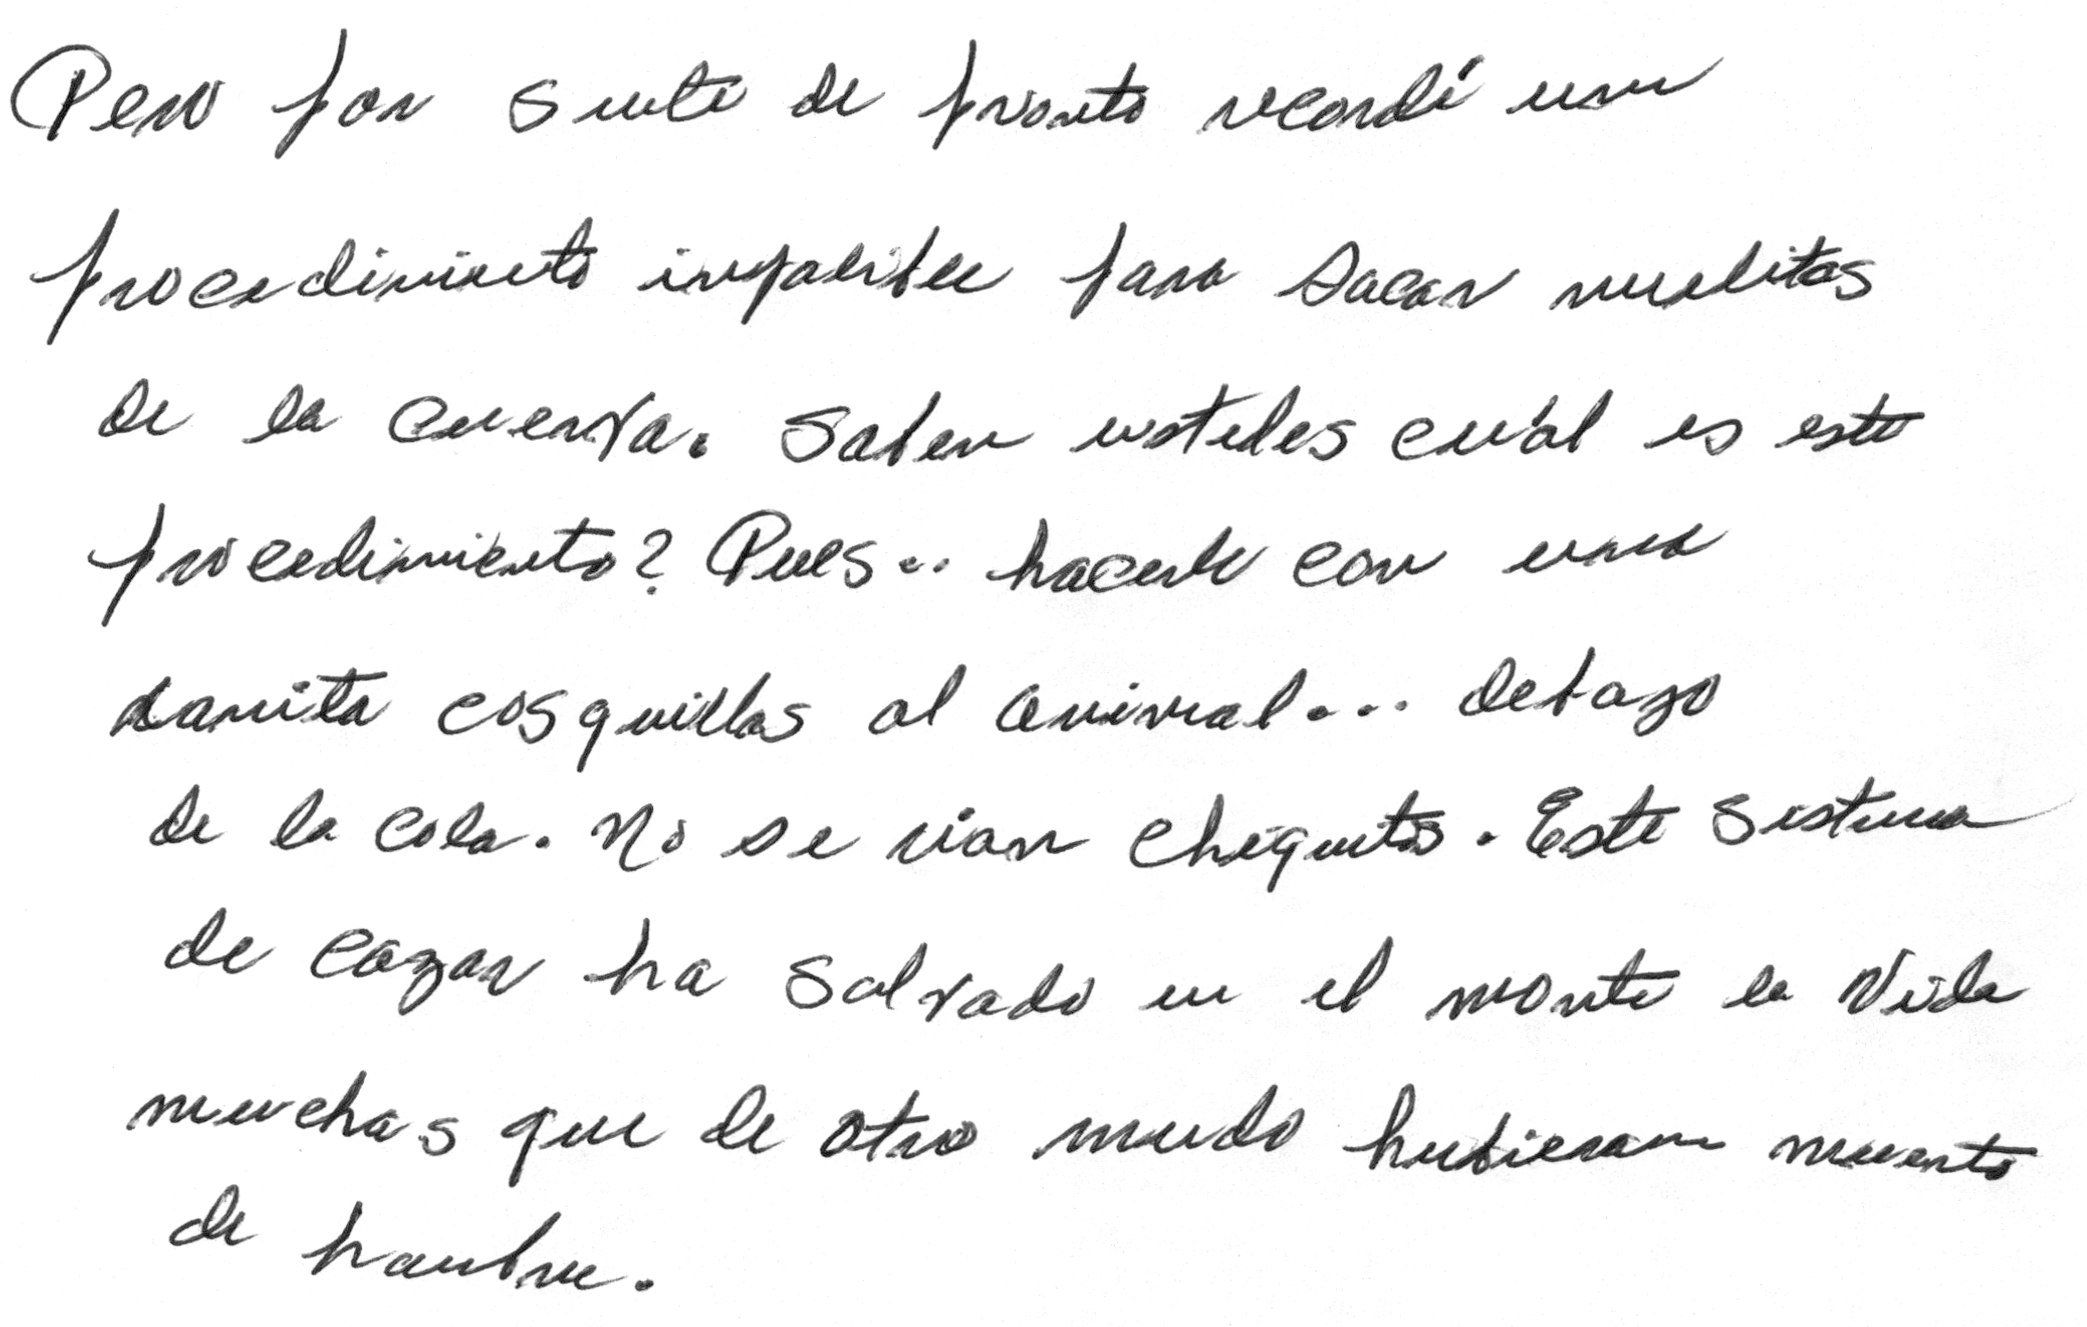 Pero por suerte de pronto recordé un
procedimiento infalible para sacar mulitas
de la cueva. Saben ustedes cuál es este
procedimiento? Pues.. hacerle con una
ramita cosquillas al animal... debajo
de la cola. No se rian chiquitos. Este sistema
de cazar ha salvado en el monte la vida
muchas que de otro modo hubieran muerto
de hambre.